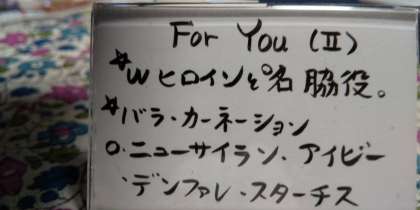 For You (II)
☆Wヒロインと名脇役。
☆バラ・カーネーション
○・ニューサイラン・アイビー
・デンファレ・スターチス